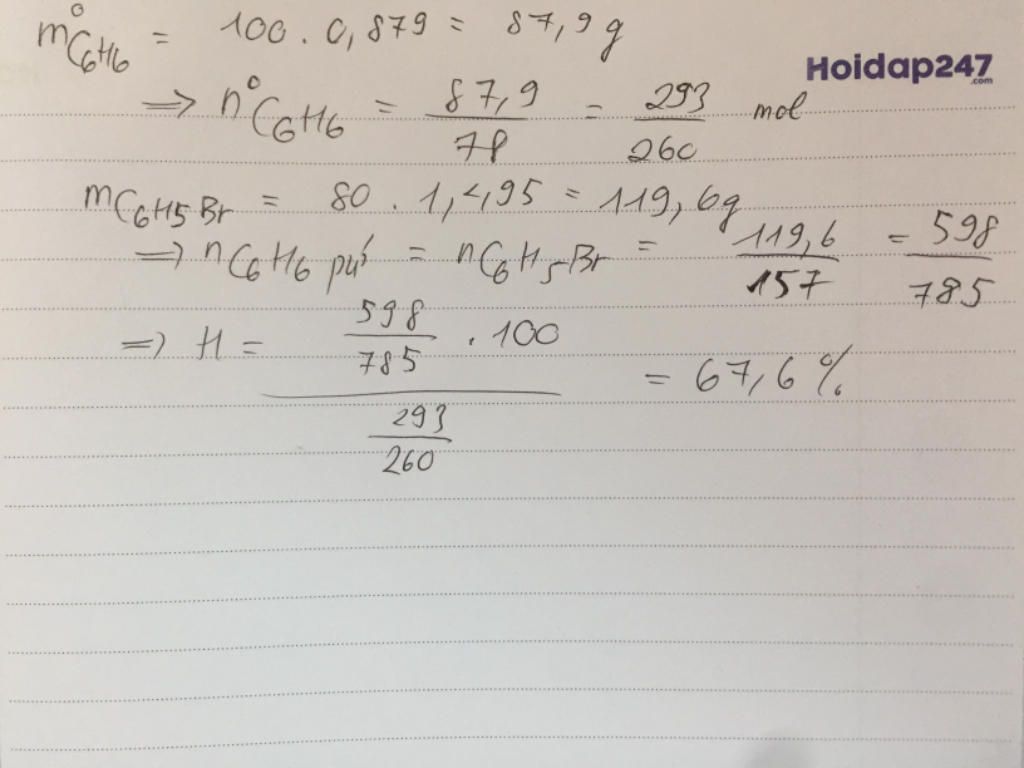 m°C6H6 = 100 . 0,879 = 87,9 g
Hoidap247
.com
=> n°C6H6 = 87,9/78 = 293/260 mol
mC6H5Br = 80 . 1,495 = 119,6g
=> nC6H6 pứ = nC6H5Br = 119,6/157 = 598/785
=> H = (598/785 . 100)/(293/260) = 67,6 %